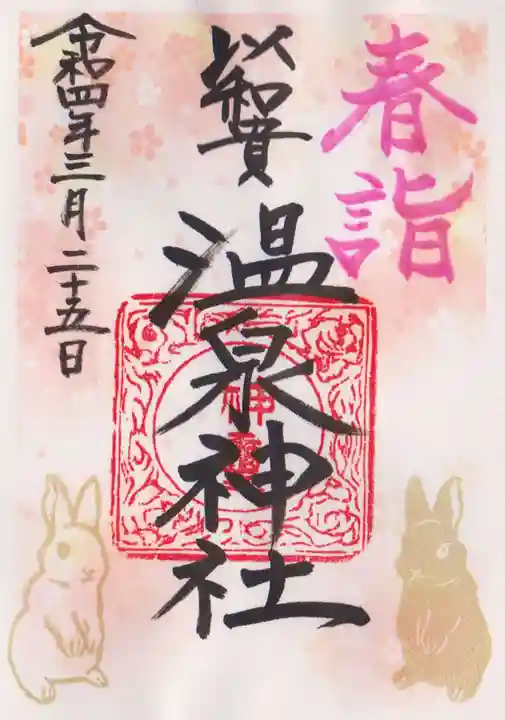 春詣
以和貴
温泉神社
令和四年三月二十五日